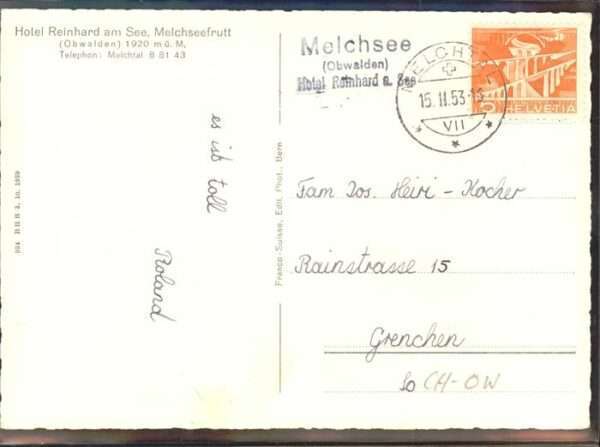 Hotel Reinhard am See, Melchseefrutt
(Obwalden) 1920 m ü. M.
Telephon: Melchtal 8 81 43
Melchsee
(Obwalden)
Hotel Reinhard a. See
15.II.53
VII
5 HELVETIA
es ist toll
Roland
Franco-Suisse, Edit. Phot., Bern
Fam Jos. Heiri - Kocher
Rainstrasse 15
Grenchen
So CH-OW